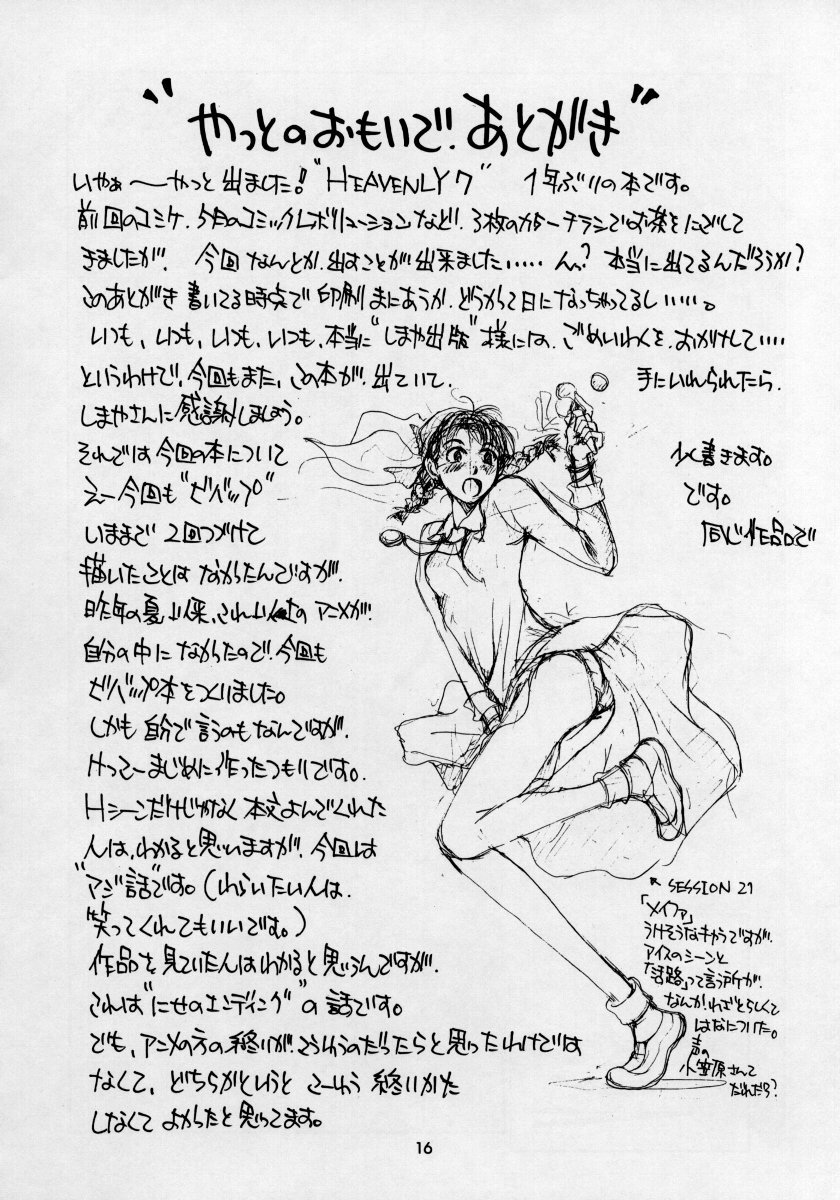 "やっとのおもいで!あとがき"
いやぁ〜やっと出ました!"HEAVENLY7" 1年ぶりの本です。
前回のコミケ、5月のコミックレボリューションなど!3枚のカラーチラシでお茶をにごして
きましたが!今回なんとか、出すことが出来ました‥‥ん?本当に出てるんだろうか?
このあとがき書いてる時点で印刷まにあうか、どうかって日になっちゃってるし‥‥。
いつも、いつも、いつも、いつも、本当に"しまや出版"様には、ごめいわくを、おかけして‥‥
というわけで、今回もまた、この本が、出ていて、手にいれられたら、
しまやさんに感謝しましょう。
それでは今回の本について少く書きます。
えー今回も"ビバップ"です。
いままで2回つづけて同じ作品で
描いたことはなかったんですが、
昨年の夏以来、これ以上のアニメが!
自分の中になかったので、今回も
ビバップ本をつくりました。
しかも自分で言うのもなんですが、
けっこーまじめに作ったつもりです。
Hシーンだけじゃなく本文よんでくれた
人は、わかると思いますが、今回は
"マジ話"です。(わらいたい人は、
笑ってくれてもいいです。)
作品を見ていた人はわかると思うんですが、
これは"にせのエンディング"の話です。
でも、アニメの方の終りが、こういうのだったらと思ったわけでは
なくて、どちらかというとこーゆう終いかた
しなくてよかったと思ってます。
↖SESSION 21
「メイファ」
うけそうなキャラですが、
アイスのシーンと
「活路」って言う所が、
なんかわざとらしくて
はなについた。
声の
小笠原さんて
だれだろ?
16